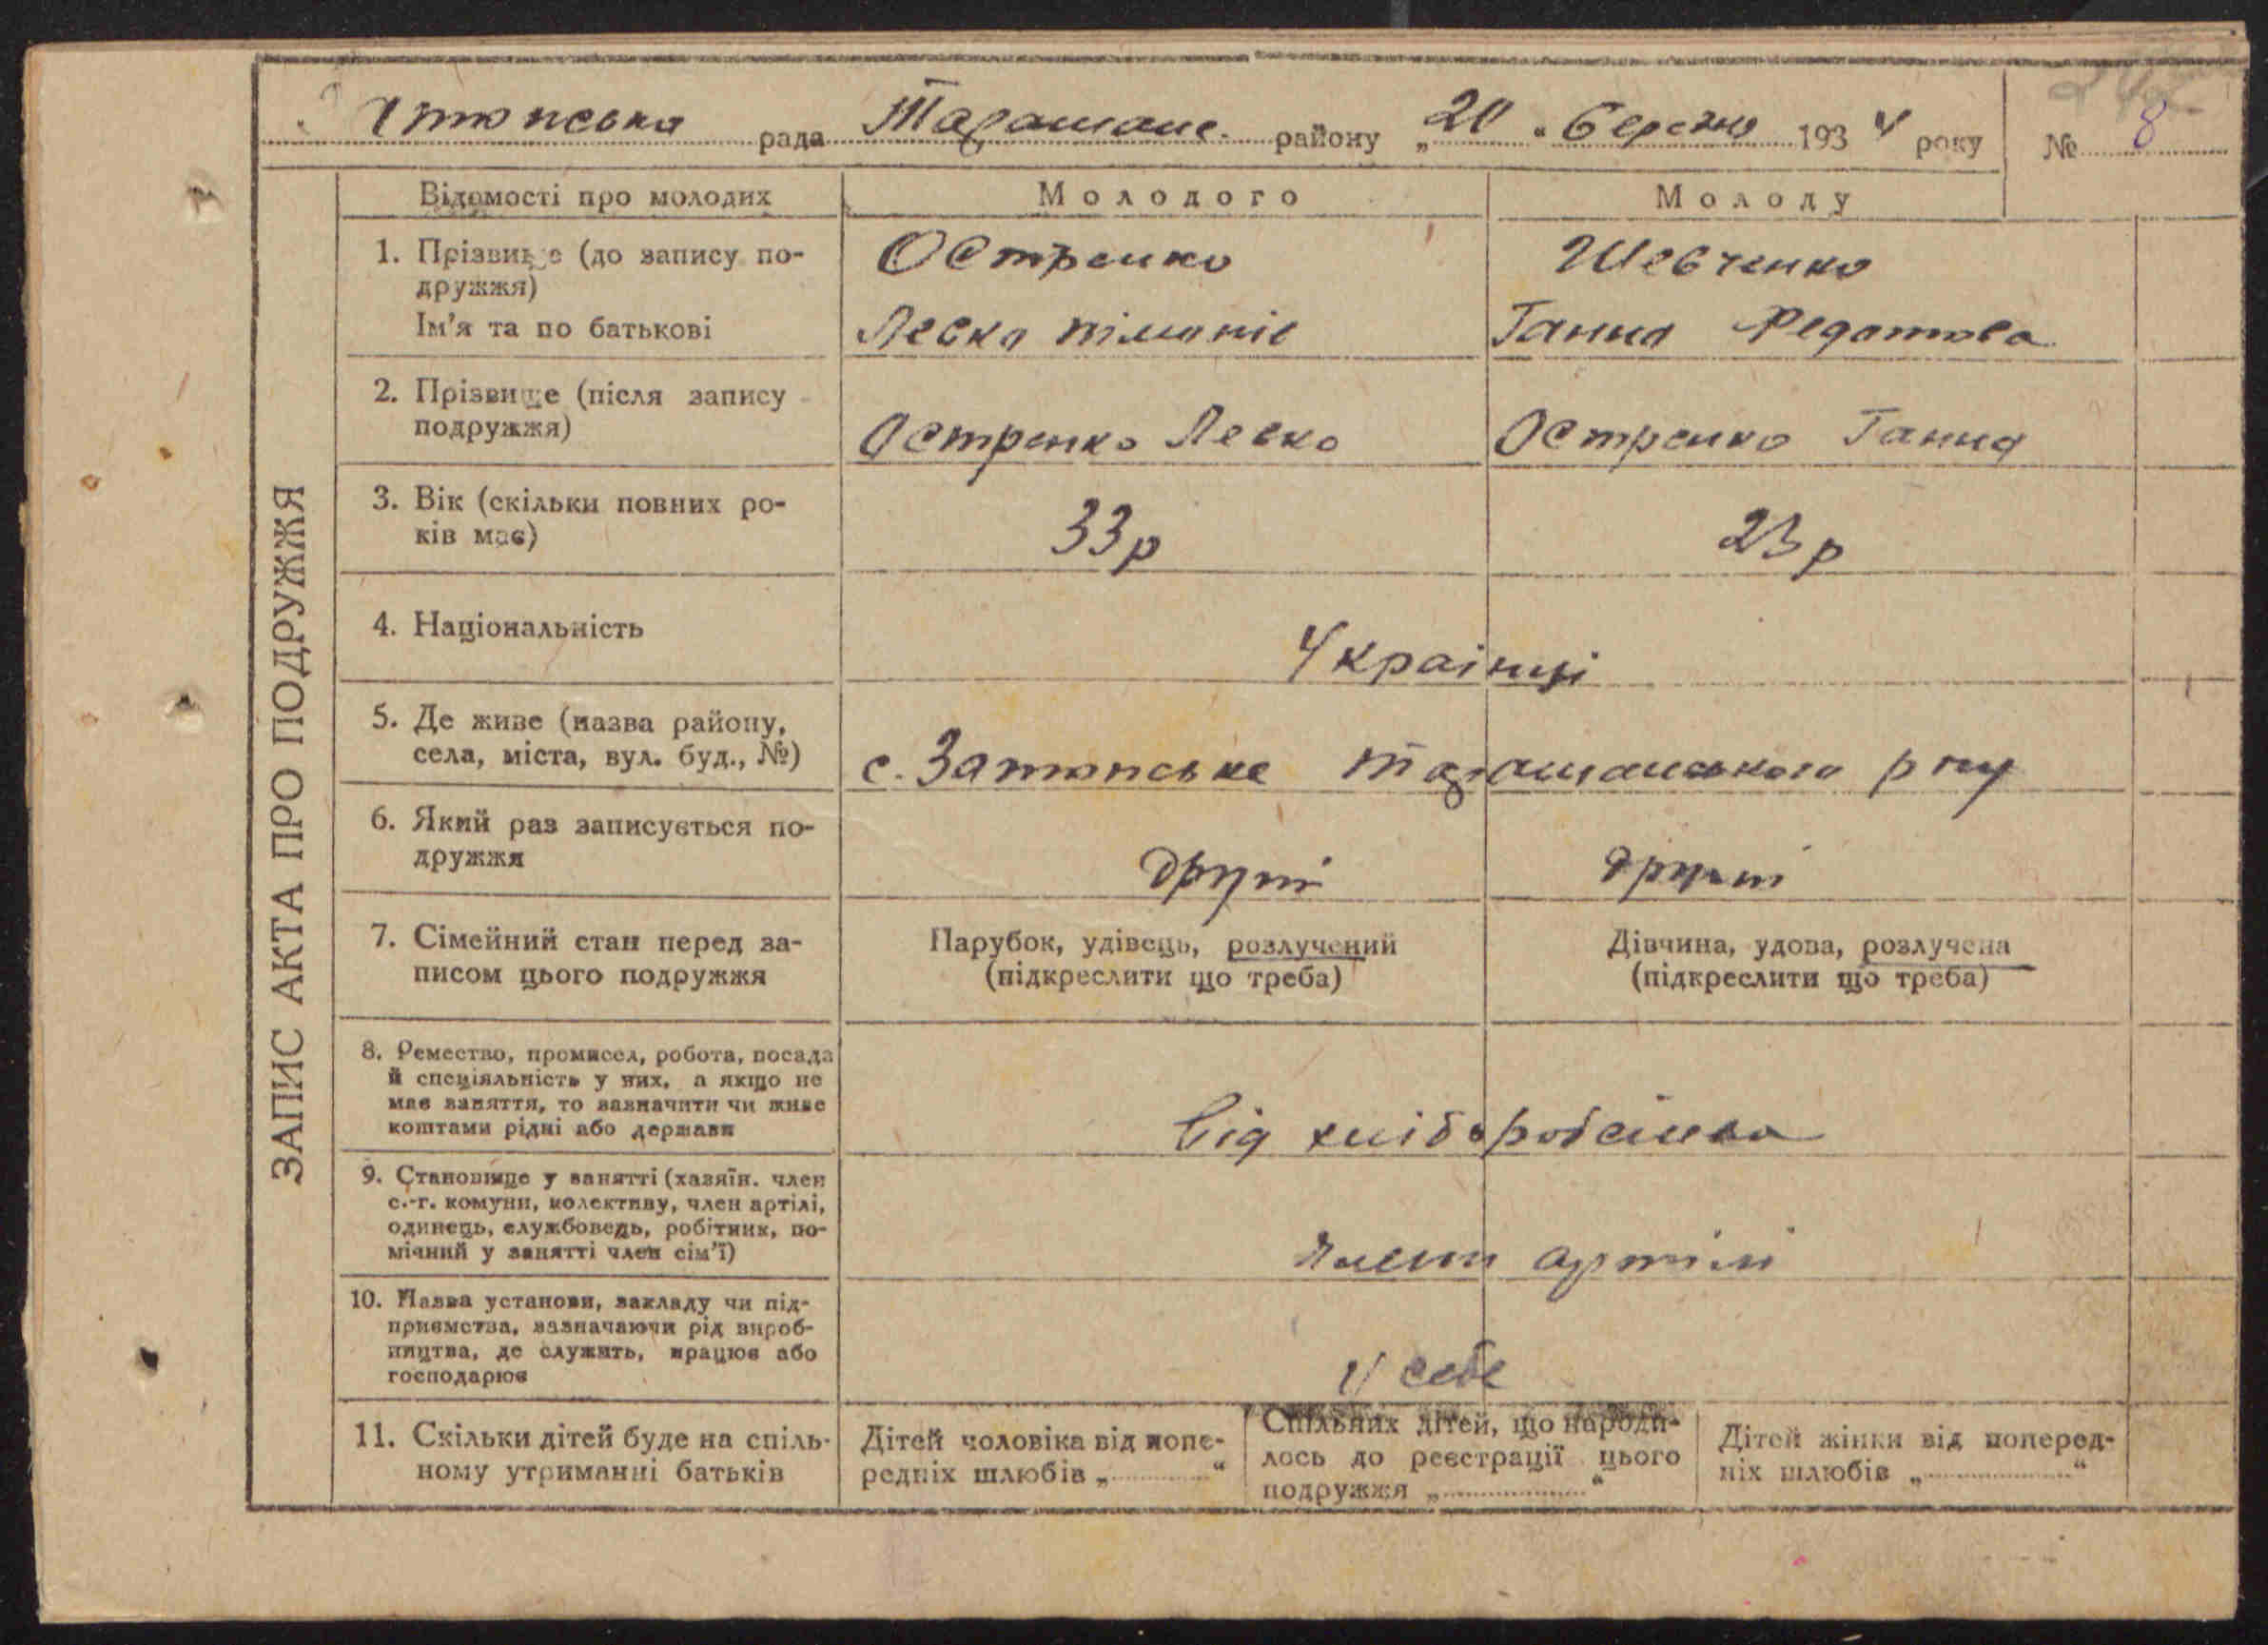 рада Таращанс. району „20“ березня 1934 року № 8
ЗАПИС АКТА ПРО ПОДРУЖЖЯ
Відомості про молодих
Молодого
Молоду
1. Прізвище (до запису по-
дружжя)
Ім'я та по батькові
Остренко
Левко
Шевченко
Ганна
2. Прізвище (після запису
подружжя)
Остренко Левко
Остренко Ганна
3. Вік (скільки повних ро-
ків має)
33р
23р
4. Національність
Українці
5. Де живе (назва району,
села, міста, вул. буд., №)
с. Таращанського р ну
6. Який раз записується по-
дружжя
другий
другий
7. Сімейний стан перед за-
писом цього подружжя
Парубок, удівець, розлучений
(підкреслити що треба)
Дівчина, удова, розлучена
(підкреслити що треба)
8. Ремество, промисел, робота, посада
й спеціяльність у них, а якщо не
має заняття, то зазначити чи живе
коштами рідні або держави
від хліборобства
9. Становище у занятті (хазяїн. член
с.-г. комуни, колективу, член артілі,
одинець, службовець, робітник, по-
мічний у занятті член сім'ї)
член артілі
10. Назва установи, закладу чи під-
приємства, зазначаючи рід вироб-
ництва, де служить, працює або
господарює
у себе
11. Скільки дітей буде на спіль-
ному утриманні батьків
Дітей чоловіка від попе-
редніх шлюбів „ “
Спільних дітей, що народи-
лось до реєстрації цього
подружжя „ “
Дітей жінки від поперед-
ніх шлюбів „ “